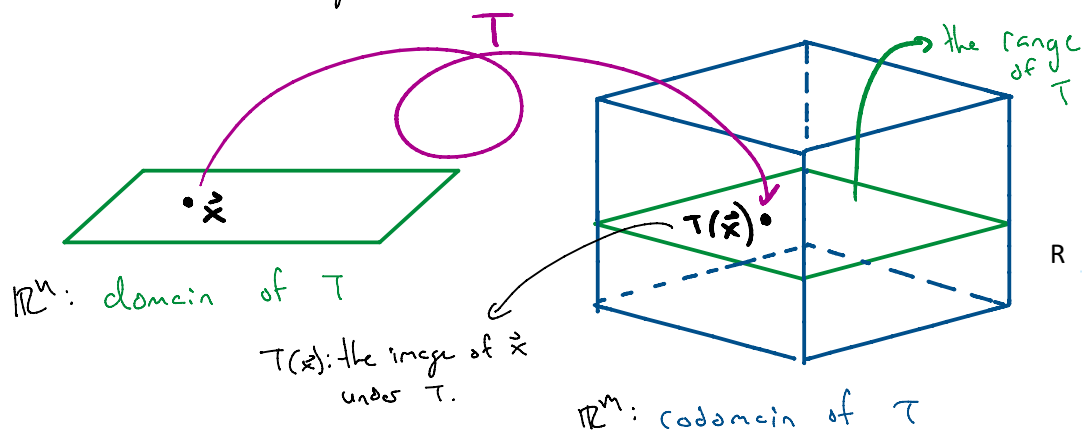 T
the range
of
T
x⃗
T(x⃗)
R
ℝⁿ: domain of T
T(x⃗): the image of x⃗
under T.
ℝᵐ: codomain of T